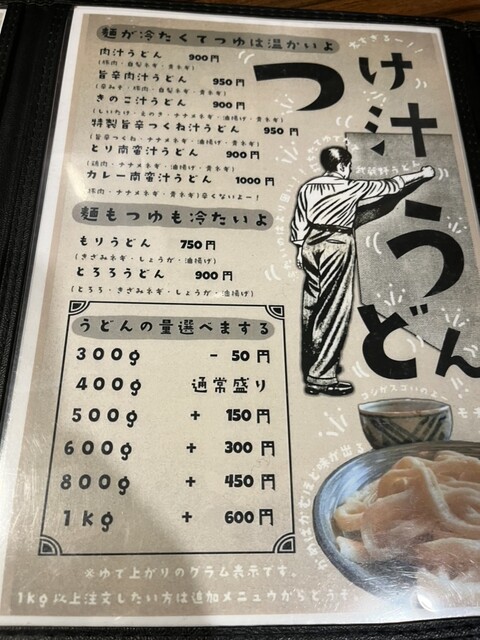 つけ汁うどん
麺が冷たくてつゆは温かいよ
肉汁うどん 900円
(豚肉・自製ネギ・青ネギ)
旨辛肉汁うどん 950円
きのこ汁うどん 900円
(しいたけ・えのき・ナナメネギ・油揚げ・青ネギ)
特製旨辛つくね汁うどん 950円
(旨辛つくね・ナナメネギ・油揚げ・青ネギ)
とり南蛮汁うどん 900円
(鶏肉・ナナメネギ・油揚げ・青ネギ)
カレー南蛮汁うどん 1000円
(豚肉・ナナメネギ・青ネギ)辛くないよー!
麺もつゆも冷たいよ
もりうどん 750円
(きざみネギ・しょうが・油揚げ)
とろろうどん 900円
(とろろ・きざみネギ・しょうが・油揚げ)
うどんの量選べまする
300g - 50円
400g 通常盛り
500g + 150円
600g + 300円
800g + 450円
1kg + 600円
※ゆで上がりのグラム表示です。
1kg以上注文したい方は追加メニュウからどうぞ。
武蔵野うどん
コシがスゴいのよー
モチ
かめばかむほど味が出る